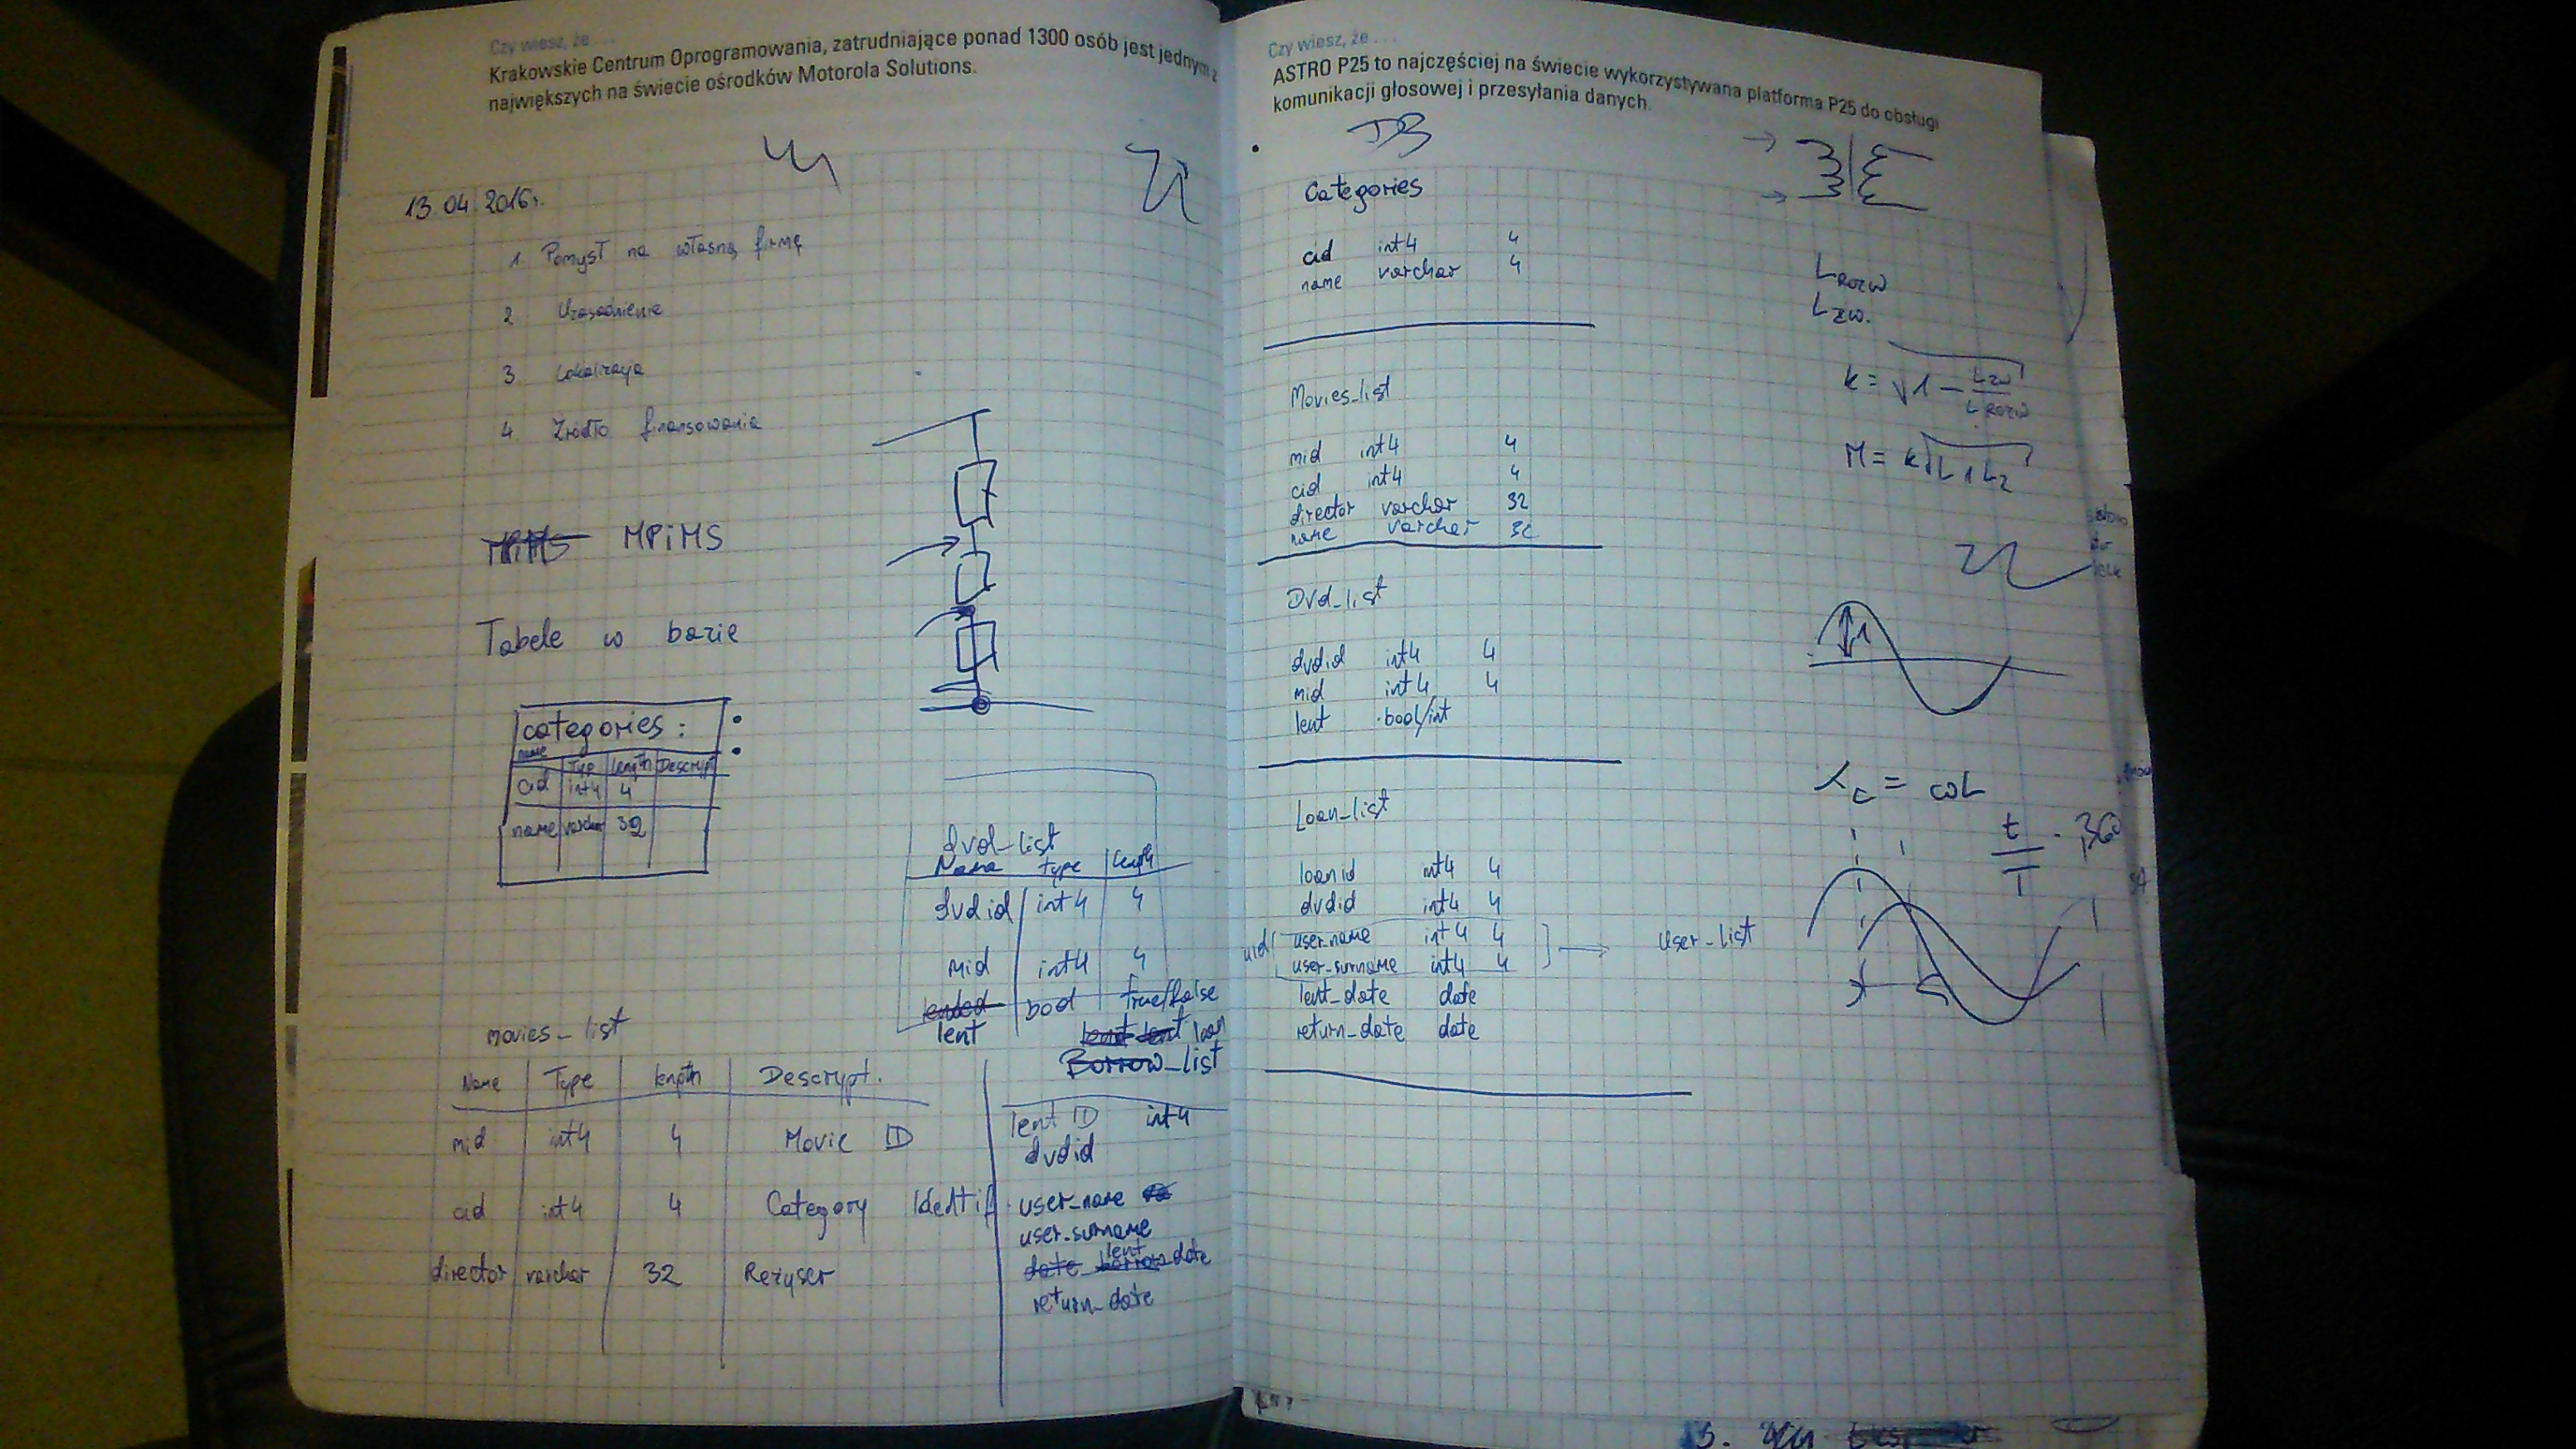 Czy wiesz, że ...
Krakowskie Centrum Oprogramowania, zatrudniające ponad 1300 osób jest jednym z
największych na świecie ośrodków Motorola Solutions.
13.04.2016r.
1. Pomysł na własną firmę
2 Uzasadnienie
3 Lokalizacja
4 Źródło finansowania
MPiMS MPiMS
Tabele w bazie
categories :
name Typ length Descrypt
cid int4 4
name varchar 32
dvd_list
Name type length
dvdid int4 4
mid int4 4
lended bool true/false
lent
movies_list
Name Type length Descrypt.
mid int4 4 Movie ID
cid int4 4 Category Identif
director varchar 32 Reżyser
lent lent loan
Borrow_list
lent ID int4
dvdid
user_name
user_surname
lent
date borrow date
return_date
Czy wiesz, że ...
ASTRO P25 to najczęściej na świecie wykorzystywana platforma P25 do obsługi
komunikacji głosowej i przesyłania danych.
DB
Categories
cid int4 4
name varchar 4
Movies_list
mid int4 4
cid int4 4
director varchar 32
name varchar 32
Dvd_list
dvdid int4 4
mid int4 4
lent bool/int
Loan_list
loanid int4 4
dvdid int4 4
uid user_name int4 4 → User_list
user_surname int4 4
lent_date date
return_date date
L ROZW
L ZW.
k = √1 - L ZW / L ROZW
M = k√L1L2
1
= ωL
t / T · 360